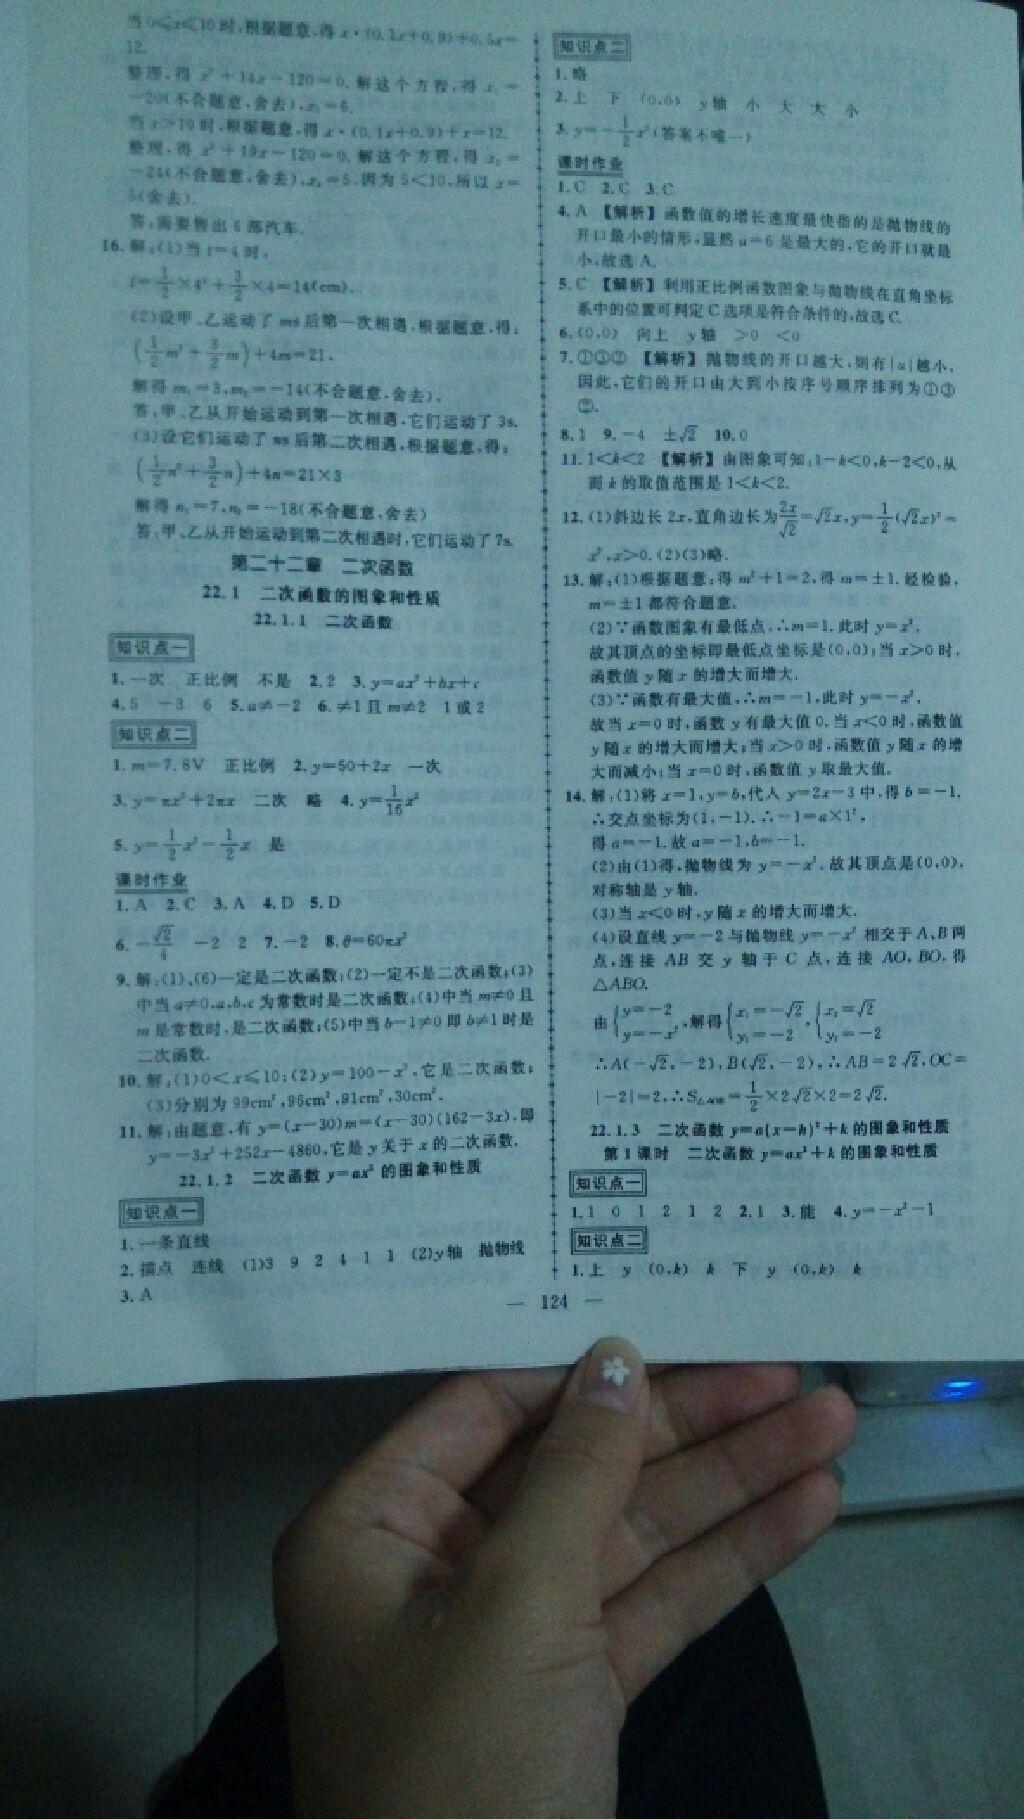 当0≤x≤10时,根据题意,得x·(0.1x+0.9)+0.5x=
12.
整理,得x²+14x-120=0.解这个方程,得x₁=
-20(不合题意,舍去),x₂=6.
当x>10时,根据题意,得x·(0.1x+0.9)+x=12.
整理,得x²+19x-120=0.解这个方程,得x₁=
-24(不合题意,舍去),x₂=5.因为5<10,所以x=
5(舍去).
答:需要售出6部汽车.
16.解:(1)当t=4时,
l=1/2×4²+3/2×4=14(cm).
(2)设甲、乙运动了ms后第一次相遇,根据题意,得:
(1/2m²+3/2m)+4m=21.
解得m₁=3,m₂=-14(不合题意,舍去).
答:甲、乙从开始运动到第一次相遇,它们运动了3s.
(3)设它们运动了ns后第二次相遇,根据题意,得:
(1/2n²+3/2n)+4n=21×3
解得n₁=7,n₂=-18(不合题意,舍去)
答:甲、乙从开始运动到第二次相遇时,它们运动了7s.
第二十二章 二次函数
22.1 二次函数的图象和性质
22.1.1 二次函数
知识点一
1.一次 正比例 不是 2.2 3.y=ax²+bx+c
4.5 -3 6 5.a≠-2 6.≠1且m≠2 1或2
知识点二
1.m=7.8V 正比例 2.y=50+2x 一次
3.y=πx²+2πx 二次 略 4.y=1/16x²
5.y=1/2x²-1/2x 是
课时作业
1.A 2.C 3.A 4.D 5.D
6.-√2/4 -2 2 7.-2 8.θ=60πx²
9.解:(1)、(6)一定是二次函数;(2)一定不是二次函数;(3)
中当a≠0,a,b,c为常数时是二次函数;(4)中当m≠0且
m是常数时,是二次函数;(5)中当b-1≠0即b≠1时是
二次函数.
10.解:(1)0<x≤10;(2)y=100-x²,它是二次函数;
(3)分别为99cm²,96cm²,91cm²,30cm².
11.解:由题意,有y=(x-30)m=(x-30)(162-3x),即
y=-3x²+252x-4860,它是y关于x的二次函数.
22.1.2 二次函数y=ax²的图象和性质
知识点一
1.一条直线
2.描点 连线 (1)3 9 2 4 1 1 (2)y轴 抛物线
3.A
知识点二
1.略
2.上 下 (0,0) y轴 小 大 大 小
3.y=-1/2x²(答案不唯一)
课时作业
1.C 2.C 3.C
4.A 【解析】函数值的增长速度最快指的是抛物线的
开口最小的情形,显然a=6是最大的,它的开口就最
小,故选A.
5.C 【解析】利用正比例函数图象与抛物线在直角坐标
系中的位置可判定C选项是符合条件的,故选C.
6.(0,0) 向上 y轴 >0 <0
7.①③② 【解析】抛物线的开口越大,则有|a|越小,
因此,它们的开口由大到小按序号顺序排列为①③
②.
8.1 9.-4 ±√2 10.0
11.1<k<2 【解析】由图象可知:1-k<0,k-2<0,从
而k的取值范围是1<k<2.
12.(1)斜边长2x,直角边长为2x/√2=√2x,y=1/2(√2x)²=
x²,x>0.(2)(3)略.
13.解:(1)根据题意:得m²+1=2,得m=±1.经检验,
m=±1都符合题意.
(2)∵函数图象有最低点,∴m=1.此时y=x²,
故其顶点的坐标即最低点坐标是(0,0);当x>0时,
函数值y随x的增大而增大.
(3)∵函数有最大值,∴m=-1,此时y=-x²,
故当x=0时,函数y有最大值0,当x<0时,函数值
y随x的增大而增大;当x>0时,函数值y随x的增
大而减小;当x=0时,函数值y取最大值.
14.解:(1)将x=1,y=b,代入y=2x-3中,得b=-1,
∴交点坐标为(1,-1),∴-1=a×1²,
得a=-1.故a=-1,b=-1.
(2)由(1)得,抛物线为y=-x²,故其顶点是(0,0),
对称轴是y轴.
(3)当x<0时,y随x的增大而增大.
(4)设直线y=-2与抛物线y=-x²相交于A、B两
点,连接AB交y轴于C点,连接AO,BO,得
△ABO.
由{y=-2 y=-x²,解得{x₁=-√2 y₁=-2,{x₂=√2 y₂=-2
∴A(-√2,-2),B(√2,-2),∴AB=2√2,OC=
|-2|=2,∴S△AOB=1/2×2√2×2=2√2.
22.1.3 二次函数y=a(x-h)²+k的图象和性质
第1课时 二次函数y=ax²+k的图象和性质
知识点一
1.1 0 1 2 1 2 2.1 3.能 4.y=-x²-1
知识点二
1.上 y (0,k) k 下 y (0,k) k
— 124 —